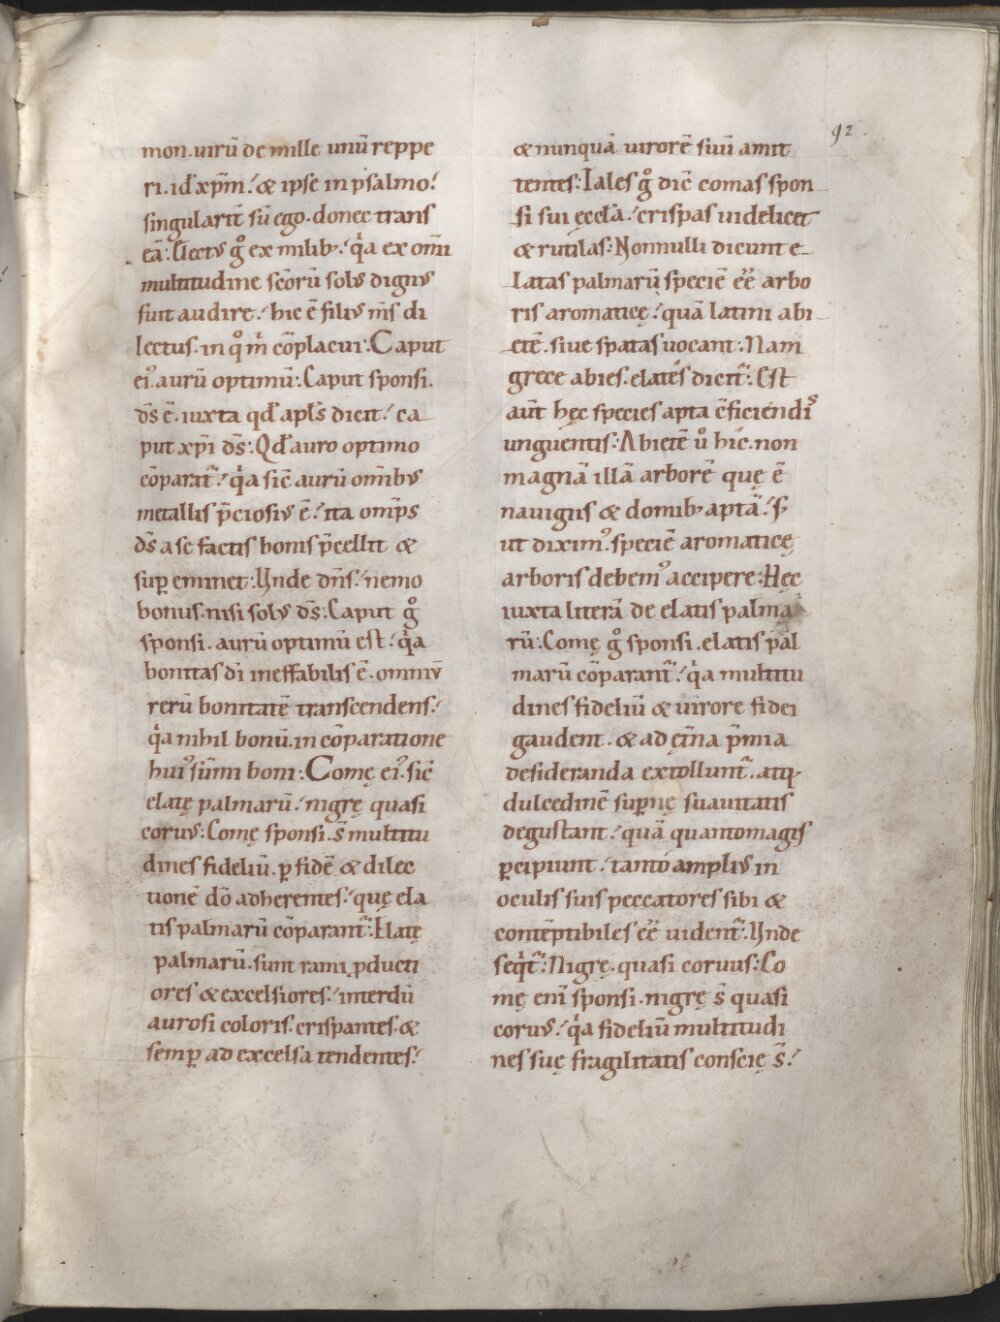 92
mon. uirū de mille unū reppe
ri. id xp̄m. & ipse in psalmo.
singularit̄ sū ego. donec trans
eā. Electꝰ g̊ ex milib; qͥa ex om̄i
multitudine sc̄orū solꝰ dignꝰ
fuit audire. hic ē filiꝰ m̄s di
lectus. in qͦ m̄ cōplacui. Caput
eiꝰ aurū optimū. Caput sponsi.
d̄s ē. iuxta qđ apl̄s dicit. ca
put xp̄i d̄s. Qđ auro optimo
cōparat᷑. qͥa sic̄ aurū omībꝰ
metallis p̄ciosiꝰ ē. ita omīps
d̄s a se factis bonis p̄cellit &
suꝑ eminet. Vnde dn̄s. nemo
bonus. nisi solꝰ d̄s. Caput g̊
sponsi. aurū optimū est. qͥa
bonitas dī ineffabilis ē. omniū
rerū bonitatē transcendens.
qͥa nihil bonū. in cōparatione
huiꝰ sūmi boni. Comę eiꝰ. sic̄
elatę palmarū. nigrę quasi
coruꝰ. Comę sponsi. s̄ multitu
dines fideliū. ꝑ fidē & dilec
tionē dō adherentes. quę ela
tis palmarū cōparant᷑. Elatę
palmarū. sunt rami ꝓducti
ores & excelsiores. interdū
aurosi coloris. crispantes. &
semꝑ ad excelsa tendentes.
& nunquā uirorē suū amit
tentes. Tales g̊ dic̄ comas spon
si sui ęccl̄a. crispas uidelicet
& rutilas. Nonnulli dicunt e
latas palmarū speciē ēē arbo
ris aromaticę. quā latini abi
etē. siue spatas uocant. Nam
grece abies. elatēs dicit᷑. Est
aut̄ hęc species apta c̄ficiendiꝰ
unguentis. Abietē ůͦ hic. non
magnā illā arborē quę ē
nauigiis & domib; aptā. s;
ut diximꝰ. speciē aromaticę
arboris debemꝰ accipere. Hęc
iuxta literā de elatis palma
rū. Comę g̊ sponsi. elatis pal
marū cōparant᷑. qͥa multitu
dines fideliū & uirore fidei
gaudent. & ad et̄na p̄mia
desideranda extollunt᷑. atq;
dulcedinē suꝑnę suauitatis
degustant. quā quantomagis
ꝑcipiunt. tanto ampliꝰ in
oculis suis peccatores sibi &
contēptibiles ēē uident᷑. Vnde
seqͥt᷑. Nigrę. quasi coruus. Co
mę enī sponsi. nigrę s̄ quasi
coruꝰ. qͥa fideliū multitudi
nes suę fragilitatis conscię s̄.